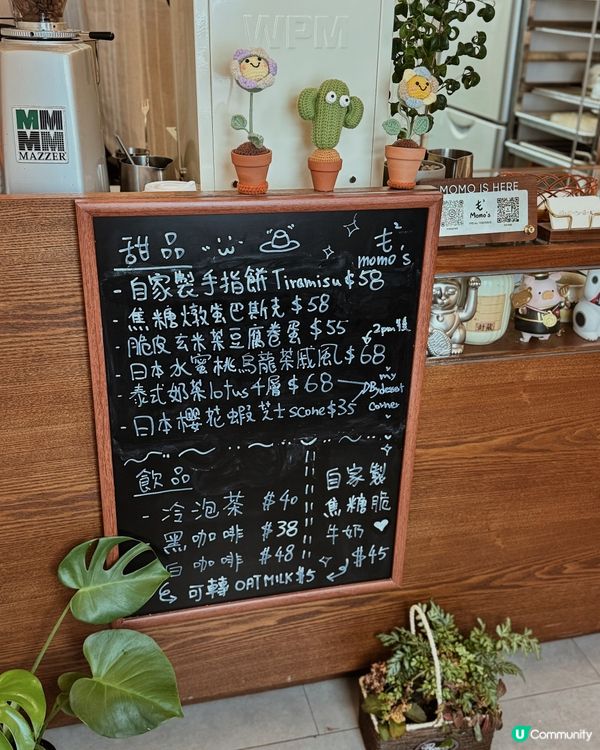 WPM
MAZZER
MOMO IS HERE
Momo's
甜品
momo's
- 自家製手指餅Tiramisu $58
- 焦糖燉蛋巴斯克 $58
- 脆皮玄米茶豆腐卷蛋 $55
2pm 後
- 日本水蜜桃烏龍茶戚風 $68
- 泰式奶茶lotus 4層 $68
my
By dessert
corner
- 日本櫻花蝦芝士scone $35
飲品
- 冷泡茶 $40
黑咖啡 $38
白咖啡 $48
可轉 OATMILK $5
自家製
焦糖脆
牛奶
$45
U Community